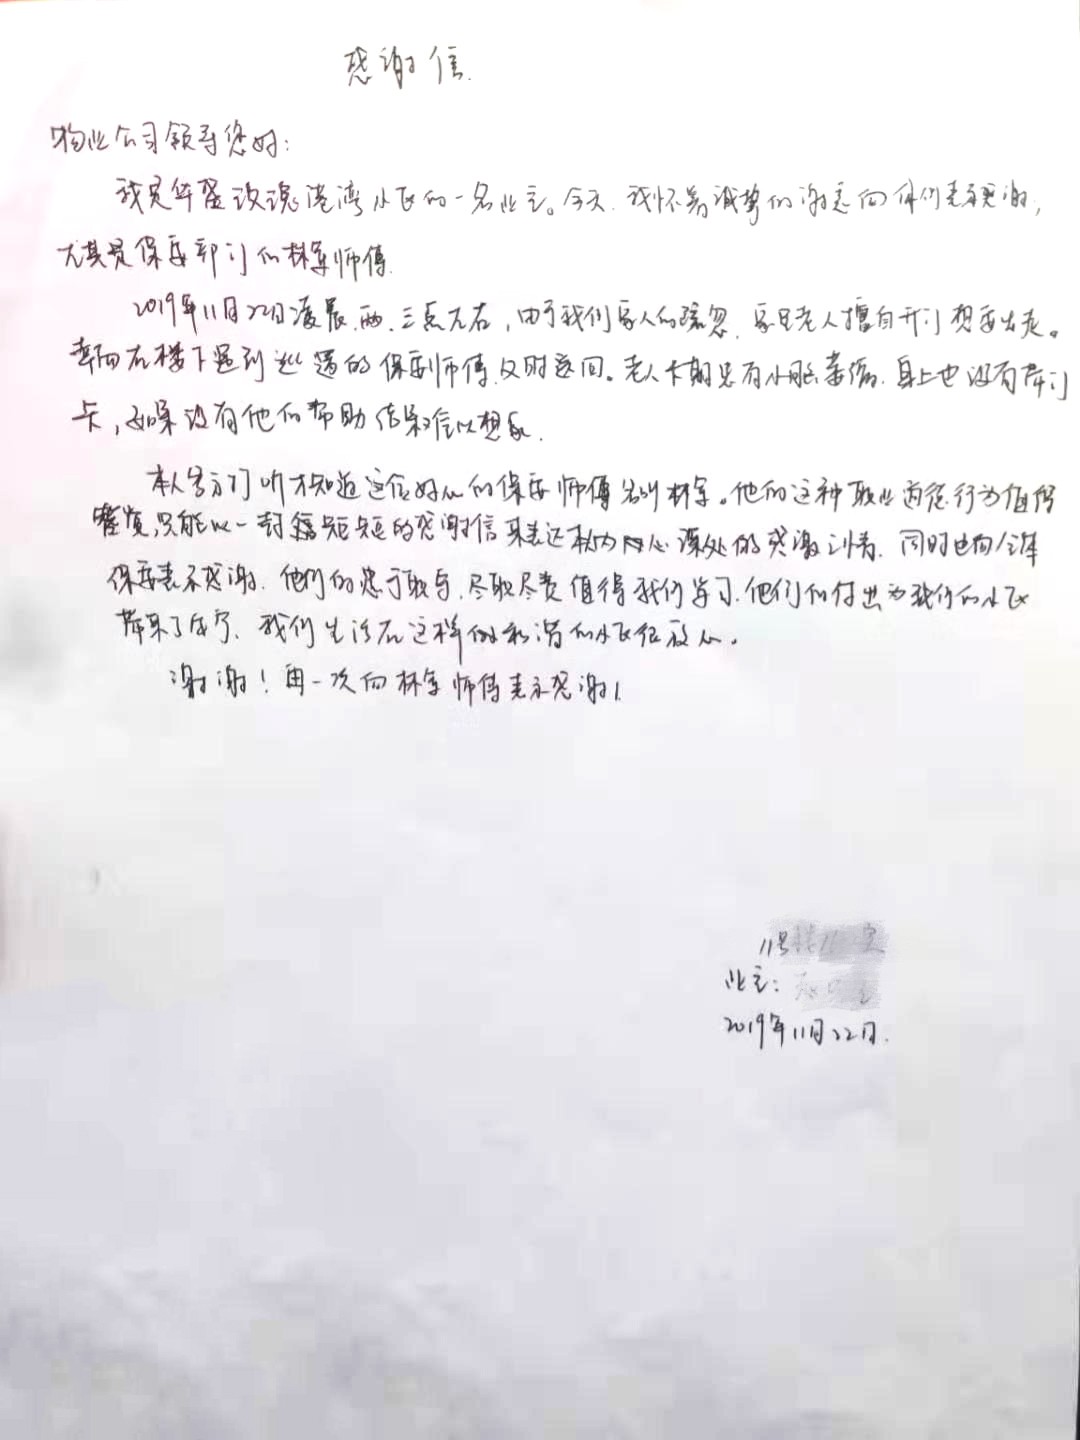 感谢信
物业公司领导您好：
我是华盛玫瑰港湾小区的一名业主。今天，我怀着诚挚的谢意向你们表示感谢，
尤其是保安部门的林军师傅
2019年11月22日凌晨，两、三点左右，由于我们家人的疏忽，家里老人擅自开门想要出走。
幸而在楼下遇到巡逻的保安师傅及时返回。老人长期患有小脑萎缩，身上也没有带门
卡，如果没有他的帮助结果难以想象
本人多方打听才知道这位好心的保安师傅名叫林军。他的这种职业道德行为值得
赞赏，只能以一封短短的感谢信来表达我内心深处的感激之情，同时也向全体
保安表示感谢，他们的忠于职守，尽职尽责值得我们学习，他们的付出为我们的小区
带来了安宁，我们生活在这样的和谐的小区很放心。
谢谢！再一次向林军师傅表示感谢！
11号
业主：
2019年11月22日.